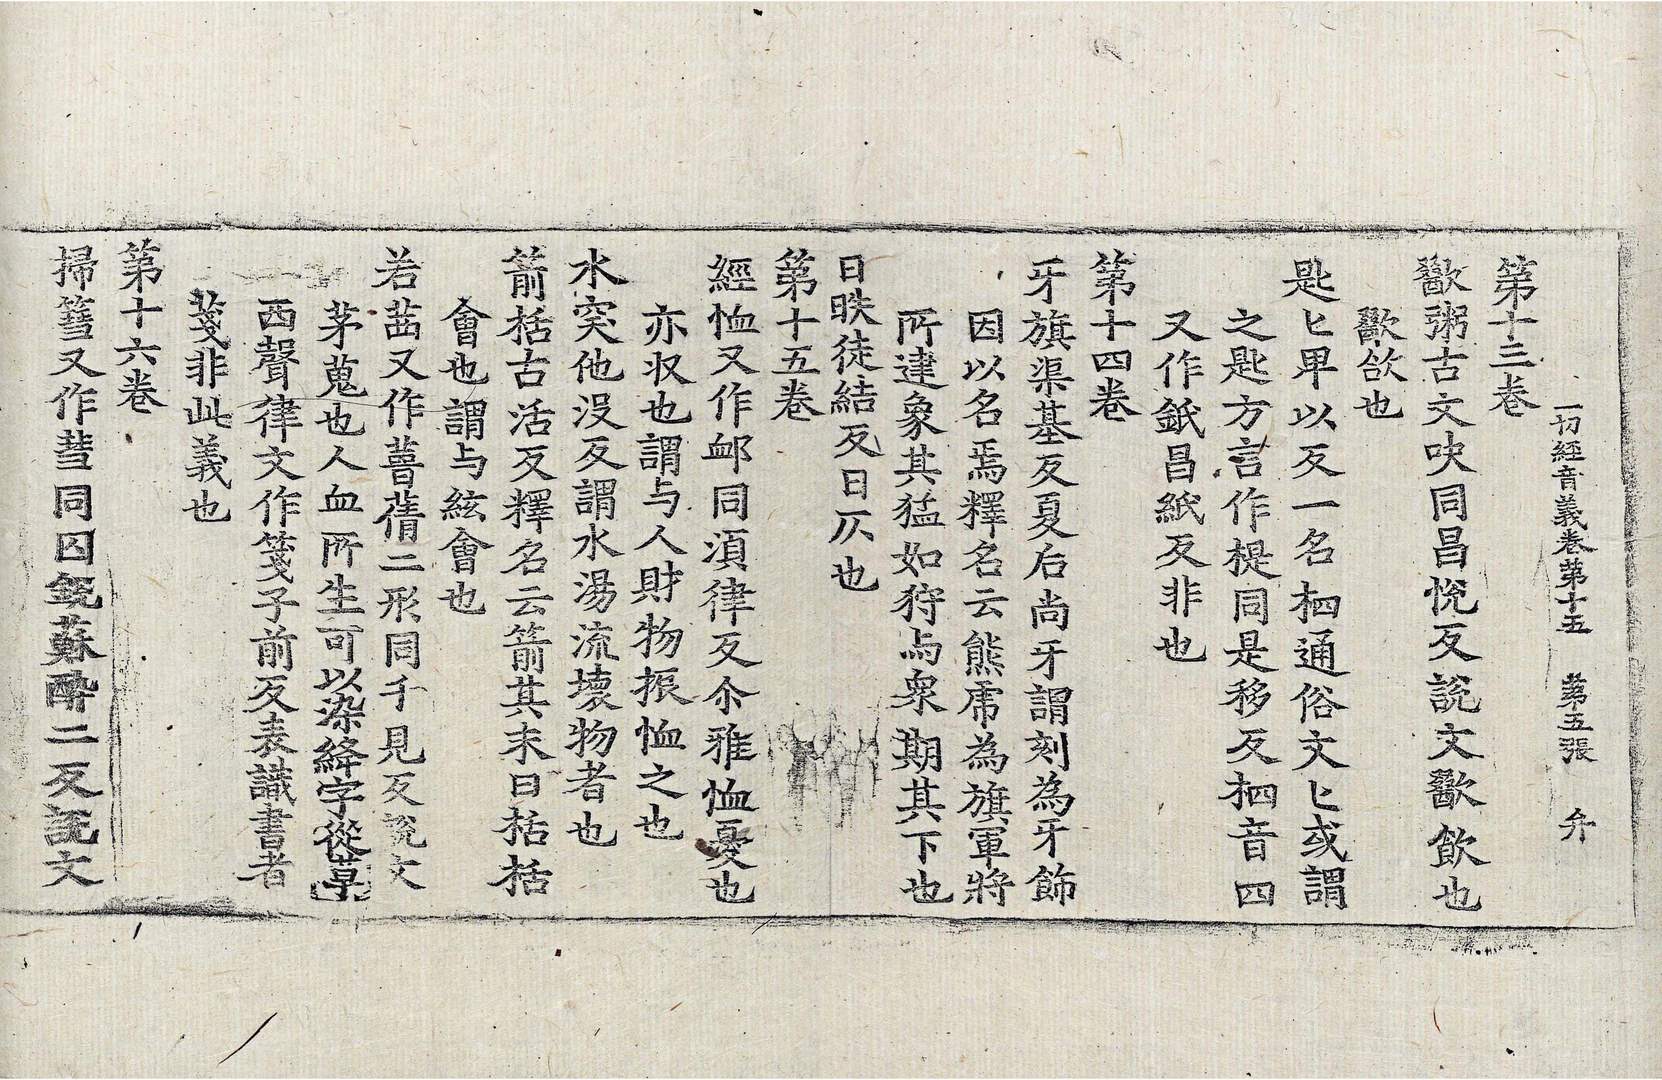 一切經音義卷第十五　第五張　弁
第十三卷
歠粥古文吷同昌悅反說文歠飲也
歠欱也
匙匕卑以反一名柶通俗文匕或謂
之匙方言作椹同是移反柶音四
又作䤥昌紙反非也
第十四卷
牙旗渠基反夏后尚牙謂刻為牙飾
因以名焉釋名云熊虎為旗軍將
所建象其猛如狩与衆期其下也
日昳徒結反日仄也
第十五卷
經恤又作卹同湏律反尒雅恤憂也
亦収也謂与人財物振恤之也
水突他沒反謂水湯流壞物者也
箭括古活反釋名云箭其末曰括括
會也謂与絃會也
若茜又作蒨蒨二形同千見反說文
茅蒐也人血所生可以染絳字從草
西聲律文作箋子前反表識書者
箋非此義也
第十六卷
掃篲又作彗同囚銳蘇醉二反說文